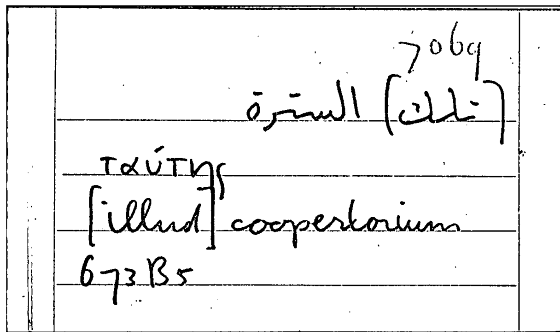 7069
[تلك] السترة
ταύτης
[illud] coopertorium
673B5